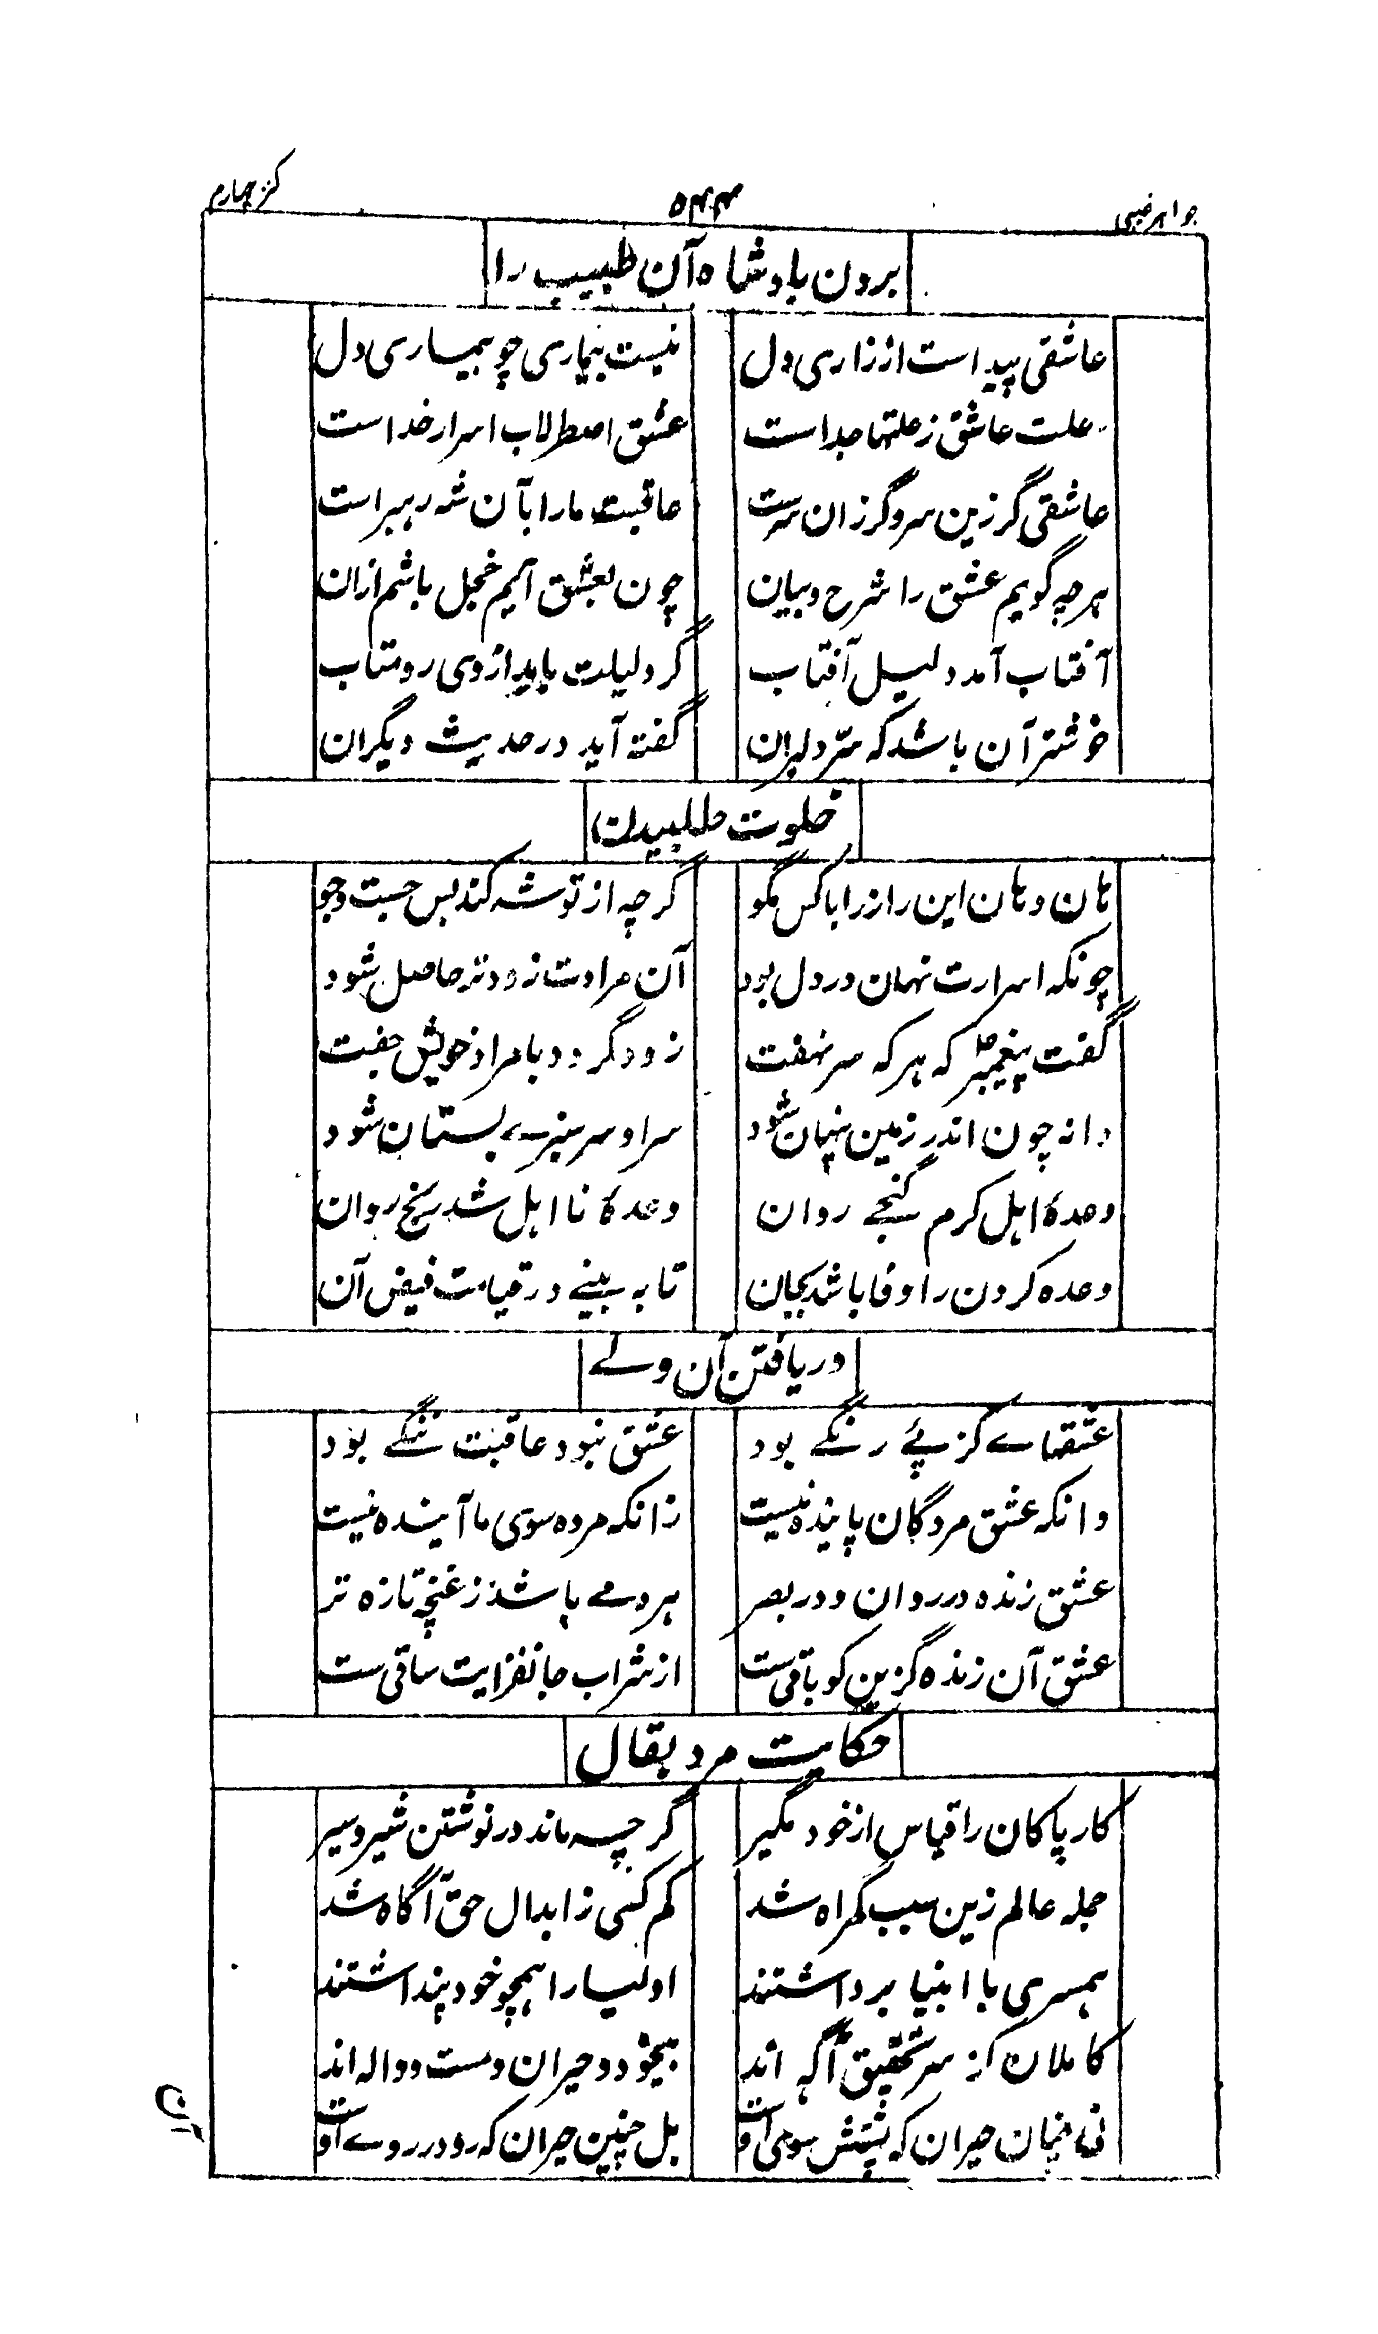 جواهر غیبی ۵۴۴ کنز چهارم
بردن بادشاه آن طبیب را
عاشقی پیداست از زاری دل نیست بیماری چو بیماری دل
علت عاشق ز علتها جداست عشق اصطرلاب اسرار خداست
عاشقی گر زین سر و گر زان سرست عاقبت ما را بآن شه رهبر است
هرچه گویم عشق را شرح و بیان چون بعشق آیم خجل باشم ازان
آفتاب آمد دلیل آفتاب گر دلیلت باید از وی رو متاب
خوشتر آن باشد که سرّ دلبران گفته آید در حدیث دیگران
خلوت طلبیدن
هان و هان این راز را با کس مگو گرچه از تو شه کند بس جست و جو
چونکه اسرارت نهان در دل بود آن مرادت زودتر حاصل شود
گفت پیغمبر که هر که سر نهفت زود گردد با مراد خویش جفت
دانه چون اندر زمین پنهان شود سر او سرسبزے بستان شود
وعدۀ اهل کرم گنجے روان وعدۀ نا اهل شد رنج روان
وعده کردن را وفا باشد بجان تا به بینے در قیامت فیض آن
دریافتن آن ولے
عشقهاے کز پئے رنگے بود عشق نبود عاقبت ننگے بود
دانکه عشق مردگان پاینده نیست زانکه مرده سوی ما آینده نیست
عشق زنده در روان و در بصر هر دمے باشد ز غنچه تازه تر
عشق آن زنده گزین کو باقی ست از شراب جانفزایت ساقی ست
حکایت مرد بقال
کار پاکان را قیاس از خود مگیر گرچه ماند در نوشتن شیر و سیر
جمله عالم زین سبب گمراه شد کم کسی ز ابدال حق آگاه شد
همسری با انبیا برداشتند اولیا را همچو خود پنداشتند
کاملان کز سر تحقیق آگه اند بیخود و حیران و مست و واله اند
نی چنان حیران که پشتش سوی اوست بل چنین حیران که رو در روے اوست
آن